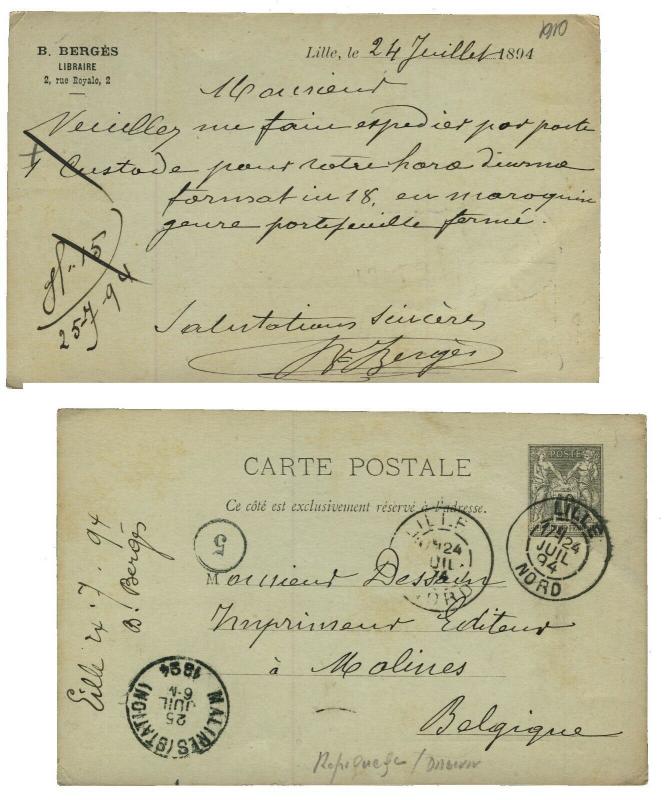 B. BERGÈS
LIBRAIRE
2, rue Royale, 2
1910
Lille, le 24 Juillet 1894
Monsieur
Veuillez me faire expedier par poste
1 Custode pour votre horae diurnae
format in 18, en maroquin
genre portefeuille fermé.
25-7 94
Salutations Sincères
Bergès
CARTE POSTALE
Ce côté est exclusivement réservé à l'adresse.
POSTE
LILLE
24
JUIL
94
NORD
LILLE
24
JUIL
94
NORD
5
Monsieur Dessain
Imprimeur Editeur
à Malines
Belgique
Lille 24 7 94
B. Bergès
MALINES (STATION)
25
JUIL
6-M
1894